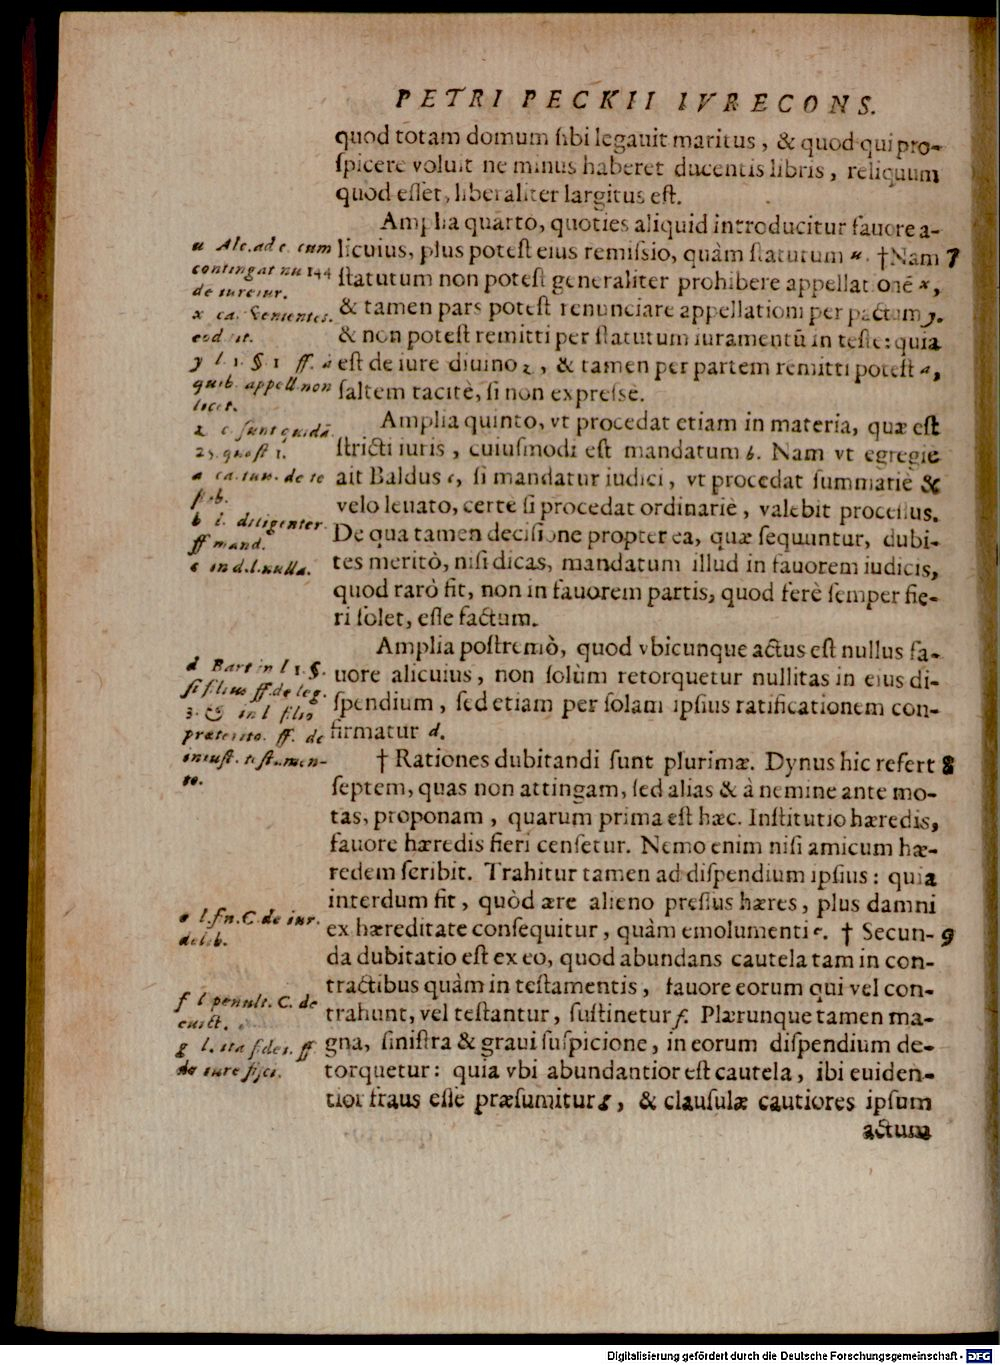 PETRI PECKII IVRECONS.
quod totam domum sibi legauit maritus, & quod qui pro-
spicere voluit ne minus haberet ducentis libris, reliquum
quod esset, liberaliter largitus est.
Amplia quartò, quoties aliquid introducitur fauore a-
licuius, plus potest eius remissio, quàm statutum u. †Nam 7
statutum non potest generaliter prohibere appellationē x,
& tamen pars potest renunciare appellationi per pactum y.
& non potest remitti per statutum iuramentū in teste: quia
est de iure diuino z, & tamen per partem remitti potest a,
saltem tacitè, si non expressè.
Amplia quinto, vt procedat etiam in materia, quæ est
stricti iuris, cuiusmodi est mandatum b. Nam vt egregie
ait Baldus c, si mandatur iudici, vt procedat summariè &
velo leuato, certe si procedat ordinariè, valebit processus.
De qua tamen decisione propter ea, quæ sequuntur, dubi-
tes meritò, nisi dicas, mandatum illud in fauorem iudicis,
quod rarò fit, non in fauorem partis, quod ferè semper fie-
ri solet, esse factum.
Amplia postremò, quod vbicunque actus est nullus fa-
uore alicuius, non solùm retorquetur nullitas in eius di-
spendium, sed etiam per solam ipsius ratificationem con-
firmatur d.
† Rationes dubitandi sunt plurimæ. Dynus hic refert 8
septem, quas non attingam, sed alias & à nemine ante mo-
tas, proponam, quarum prima est hæc. Institutio hæredis,
fauore hæredis fieri censetur. Nemo enim nisi amicum hæ-
redem scribit. Trahitur tamen ad dispendium ipsius: quia
interdum fit, quòd ære alieno pressus hæres, plus damni
ex hæreditate consequitur, quàm emolumenti e. † Secun- 9
da dubitatio est ex eo, quod abundans cautela tam in con-
tractibus quàm in testamentis, fauore eorum qui vel con-
trahunt, vel testantur, sustinetur f. Plærunque tamen ma-
gna, sinistra & graui suspicione, in eorum dispendium de-
torquetur: quia vbi abundantior est cautela, ibi euiden-
tior fraus esse præsumitur g, & clausulæ cautiores ipsum
actum
u Ale. ad c. cum
contingat nu 144
de iureiur.
x ca. Venientes.
eod. tit.
y l. 1. § 1 ff. a
quib. appell. non
licet.
z c sunt quidā.
25. quæst 1.
a ca. tuis. de te
stib.
b l. diligenter.
ff mand.
c in d. l. nulla.
d Bart in l 1. §.
si filius ff. de leg.
3. & in l filio
præterito. ff. de
iniust. testamen-
to.
e l. fin. C. de iur.
delib.
f l penult. C. de
euict.
g l. ita fidei. ff
de iure fisci.